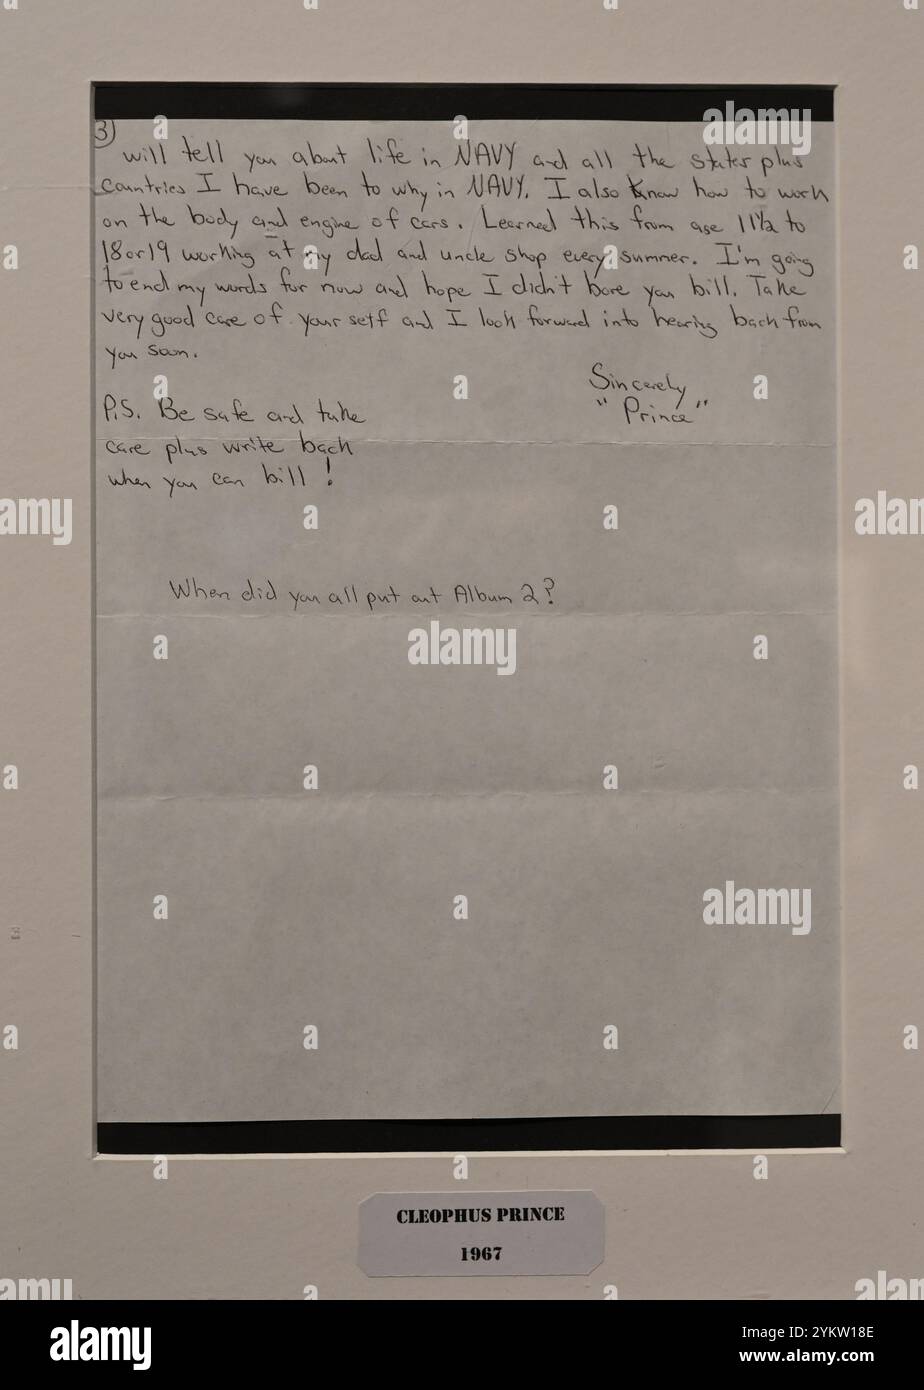 3)
will tell you about life in NAVY and all the states plus
countries I have been to why in NAVY. I also know how to work
on the body and engine of cars. Learned this from age 11½ to
18 or 19 working at my dad and uncle shop every summer. I'm going
to end my words for now and hope I didn't bore you bill. Take
very good care of your self and I look forward into hearing back from
you soon.
Sincerely
"Prince"
P.S. Be safe and take
care plus write back
when you can bill!
When did you all put out Album 2?
CLEOPHUS PRINCE
1967
alamy
Image ID: 2YKW18E
www.alamy.com